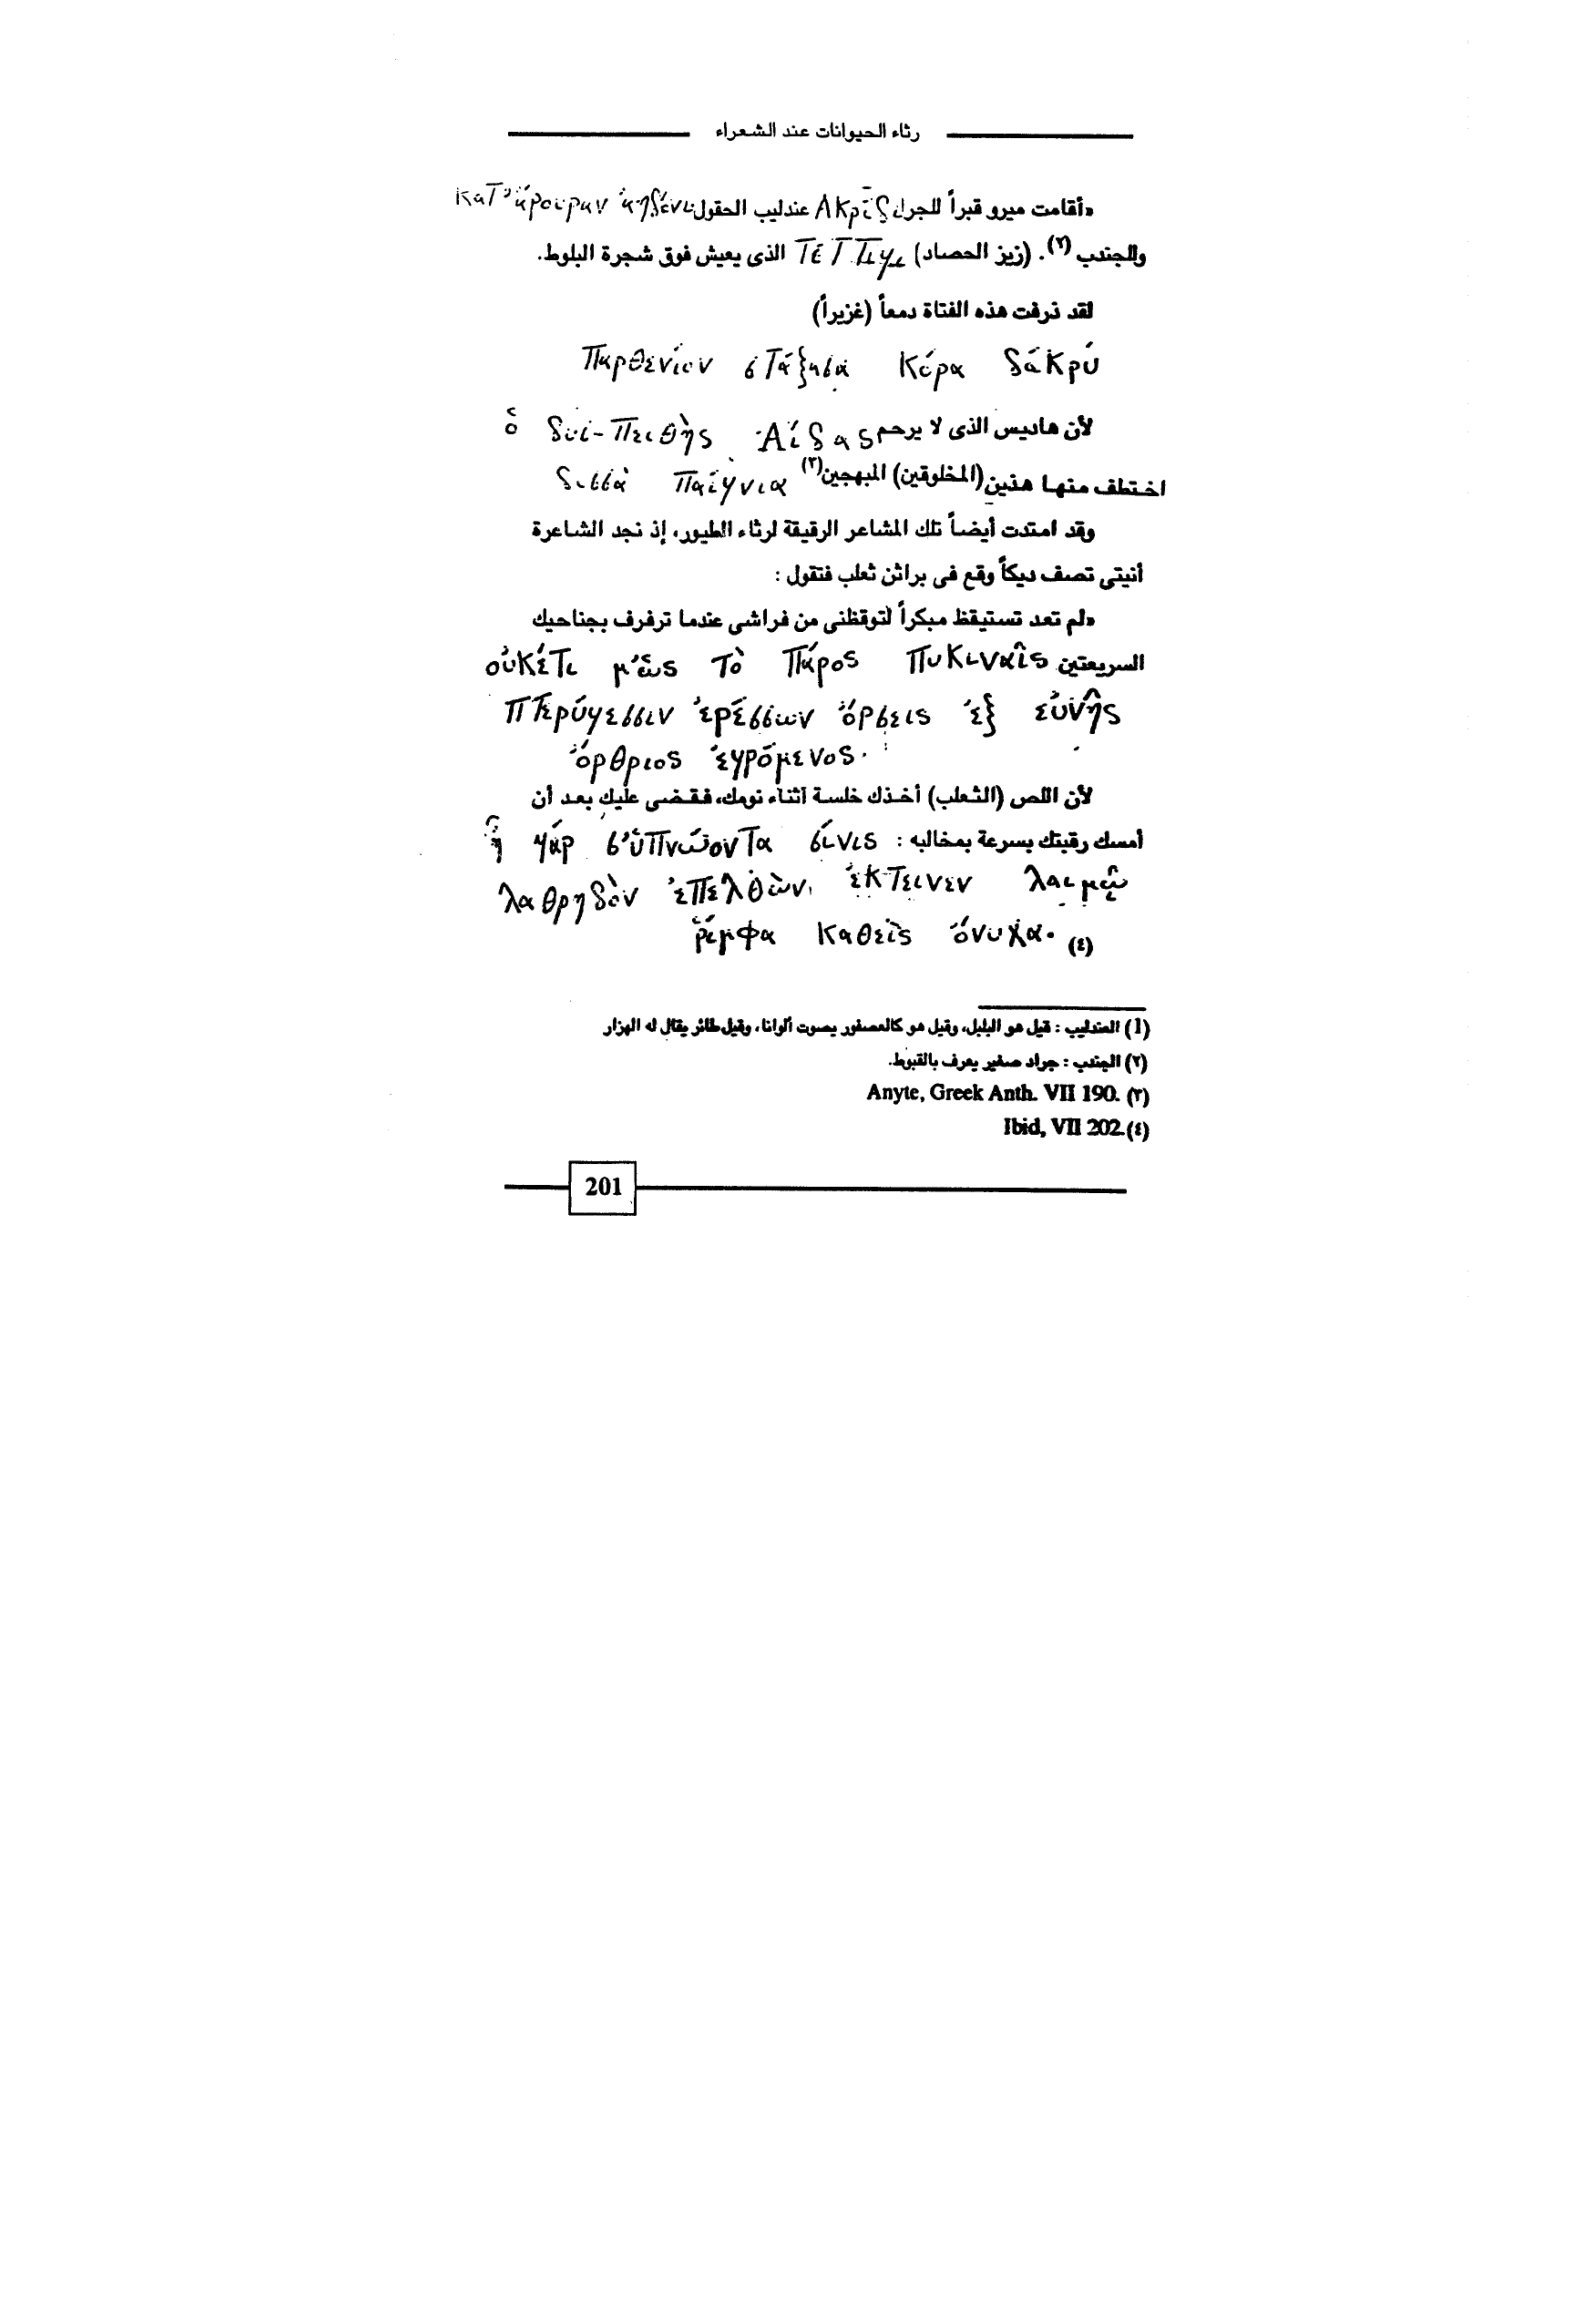 رثاء الحيوانات عند الشعراء
«أقامت ميرو قبراً للجراد Ακρίδ عندليب الحقول κατ' ἄρουραν ἀηδόνι
وللجندب (٢). (زيز الحصاد) τέττιγι الذى يعيش فوق شجرة البلوط.
لقد ذرفت هذه الفتاة دمعاً (غزيراً)
παρθένιον στάξασα κόρα δάκρυ
لأن هاديس الذى لا يرحم Ἀίδας δυσ-πειθὴς ὁ
اختطف منها هذين (المخلوقين) المبهجين (٣) παίγνια δισσὰ
وقد امتدت أيضاً تلك المشاعر الرقيقة لرثاء الطيور، إذ نجد الشاعرة
أنيتى تصف ديكاً وقع فى براثن ثعلب فتقول :
«لم تعد تستيقظ مبكراً لتوقظنى من فراشى عندما ترفرف بجناحيك
السريعتين οὐκέτι μ'ὡς τὸ πάρος πυκιναῖς
πτερύγεσσιν ἐρέσσων ὄρσεις ἐξ εὐνῆς
ὄρθριος ἐγρόμενος.
لأن اللص (الثعلب) أخذك خلسة أثناء نومك، فقضى عليك بعد أن
أمسك رقبتك بسرعة بمخالبه : ἦ γάρ σ'ὑπνώοντα σίνις
λαθρηδὸν ἐπελθὼν ἔκτεινεν λαιμῷ
ῥίμφα καθεὶς ὄνυχα. (٤)
(1) العندليب : قيل هو البلبل، وقيل هو كالعصفور يصوت ألوانا، وقيل طائر يقال له الهزار
(٢) الجندب : جراد صغير يعرف بالقبوط.
(٣) Anyte, Greek Anth. VII 190.
(٤) Ibid, VII 202.
201